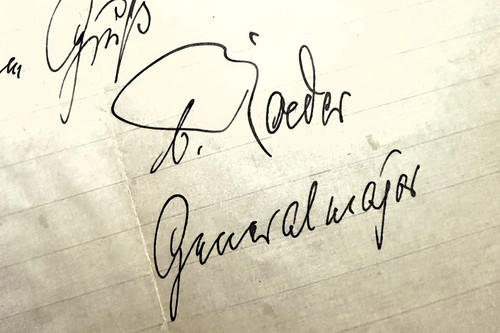 Gruß
v. Roeder
Generalmajor